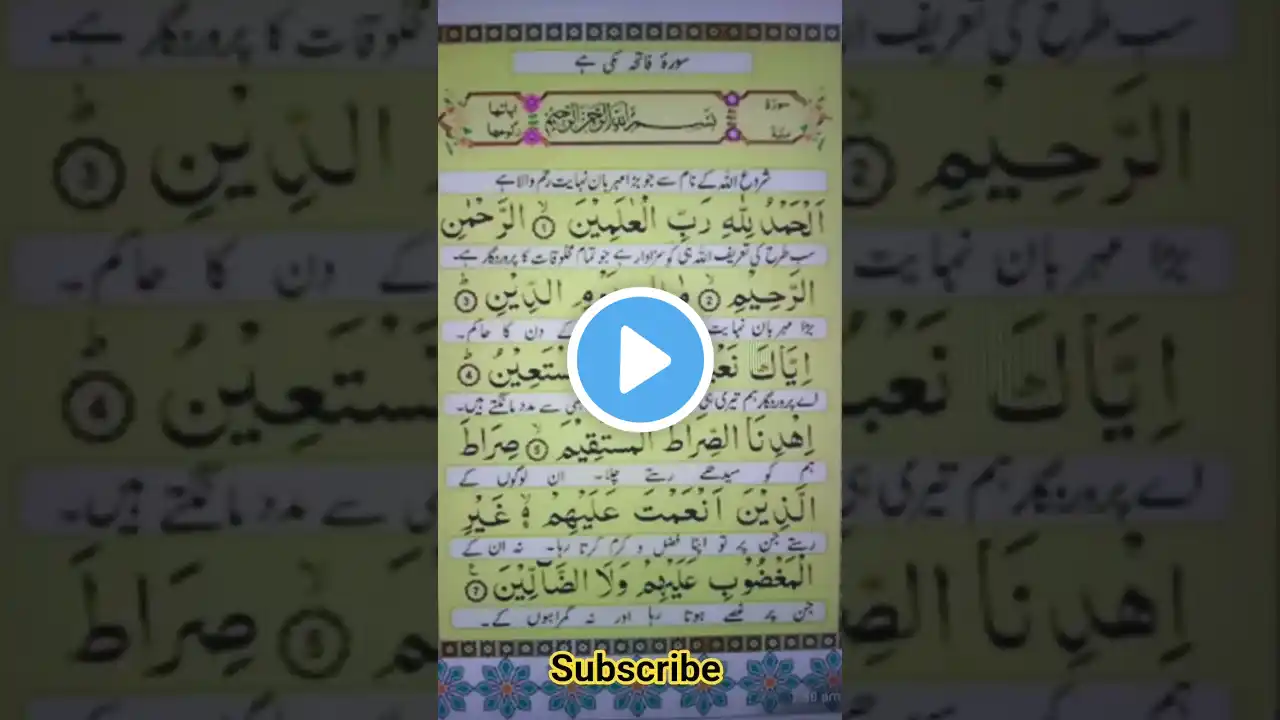 سورۂ فاتحہ مکی ہے
سورۃ
بِسْمِ اللّٰهِ الرَّحْمٰنِ الرَّحِيْمِ
شروع اللہ کے نام سے جو بڑا مہربان نہایت رحم والا ہے
اَلْحَمْدُ لِلّٰهِ رَبِّ الْعٰلَمِيْنَ ۙ‏ ١ الرَّحْمٰنِ
سب طرح کی تعریف اللہ ہی کو سزاوار ہے جو تمام مخلوقات کا پروردگار ہے۔
الرَّحِيْمِ ۙ ٢ الدِّيْنِ ؕ ٣
بڑا مہربان نہایت کے دن کا حاکم۔
اِيَّاكَ ٤
اے پروردگار ہم تیری ہی سے مدد مانگتے ہیں۔
اِهْدِنَا الصِّرَاطَ الْمُسْتَقِيْمَ ۙ ٥ صِرَاطَ
ہم کو سیدھے رستے چلا۔ ان لوگوں کے
الَّذِيْنَ اَنْعَمْتَ عَلَيْهِمْ ۙ ٦ غَيْرِ
رستے جن پر تو اپنا فضل و کرم کرتا رہا۔ نہ ان کے
الْمَغْضُوْبِ عَلَيْهِمْ وَلَا الضَّآلِّيْنَ ٧
جن پر غصے ہوتا رہا اور نہ گمراہوں کے۔
Subscribe